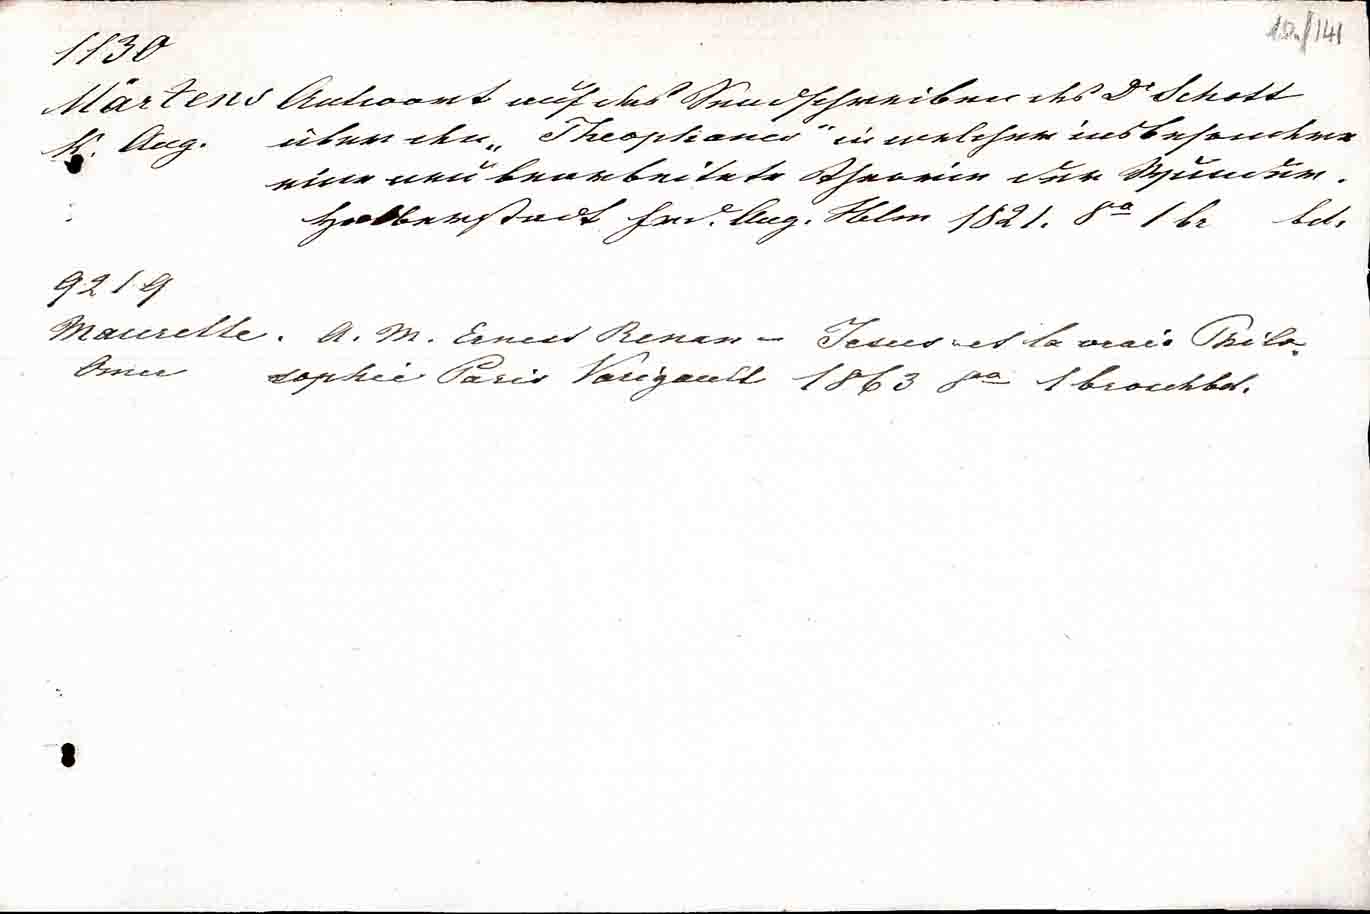 10./141
1130
Märtens Antwort auf das Sendschreiben des Dr Schott
K. Aug. über den „Theophanes" in welcher insbesondere
eine neu bearbeitete Theorie der Wunder.
Halberstadt Frd. Aug. Helm 1821. 8vo 1 br bd.
9219
Maurette. A. M. Ernest Renan - Jesus et la vraie Philo-
Omer sophie Paris Varigault 1863 8vo 1 broschbd.